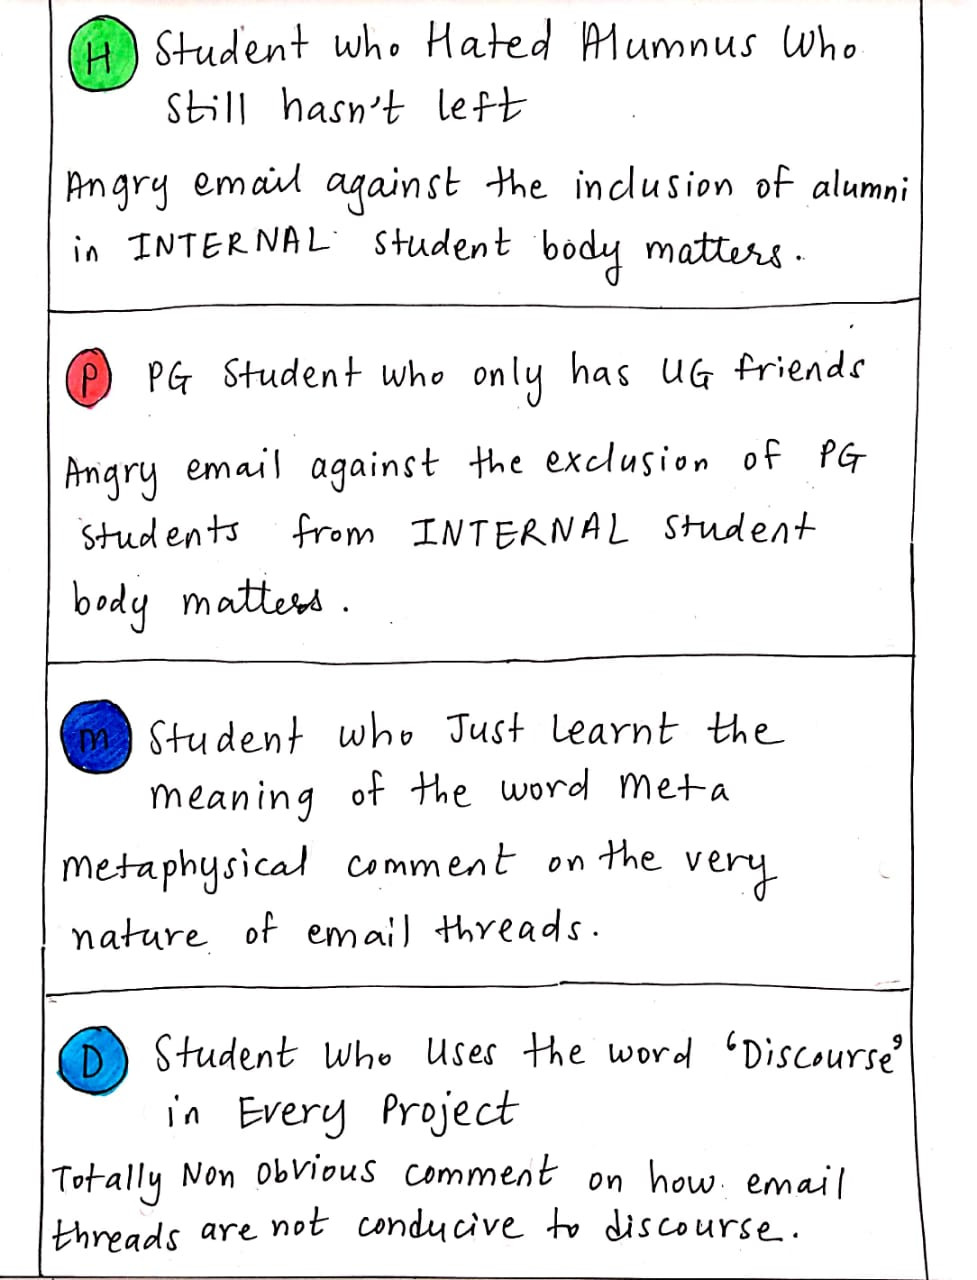 H Student who Hated Alumnus Who
Still hasn't left
Angry email against the inclusion of alumni
in INTERNAL student body matters.
P PG Student who only has UG friends
Angry email against the exclusion of PG
students from INTERNAL student
body matters.
m Student who Just Learnt the
meaning of the word meta
metaphysical comment on the very
nature of email threads.
D Student who Uses the word ‘Discourse’
in Every Project
Totally Non obvious comment on how email
threads are not conducive to discourse.